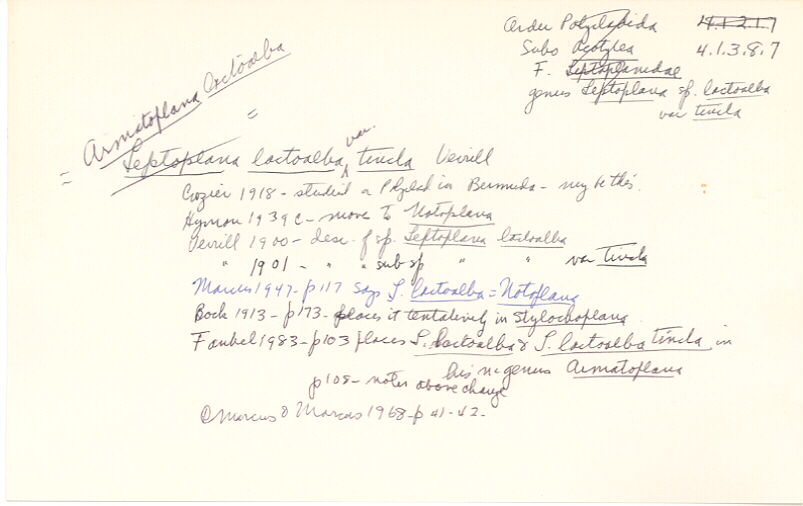 Order Polycladida 4.1.2.17
Subo Acotylea 4.1.3.8.7
F. Leptoplanidae
genus Leptoplana sp. lactoalba
var tincta
= Armatoplana lactoalba
=
Leptoplana lactoalba var. tincta Verrill
Crozier 1918 - studied a Polyclad in Bermuda - may be this.
Hyman 1939c - move to Notoplana
Verrill 1900 - desc. of sp. Leptoplana lactoalba
" 1901 - " " subsp " " var tincta
Marcus 1947 - p117 says L. lactoalba = Notoplana
Bock 1913 - p173 - places it tentatively in Stylochoplana
Faubel 1983 - p103 places L. lactoalba & L. lactoalba tincta in
his n. genus Armatoplana
p108 - notes above change
Marcus & Marcus 1968 - p 41-42 -